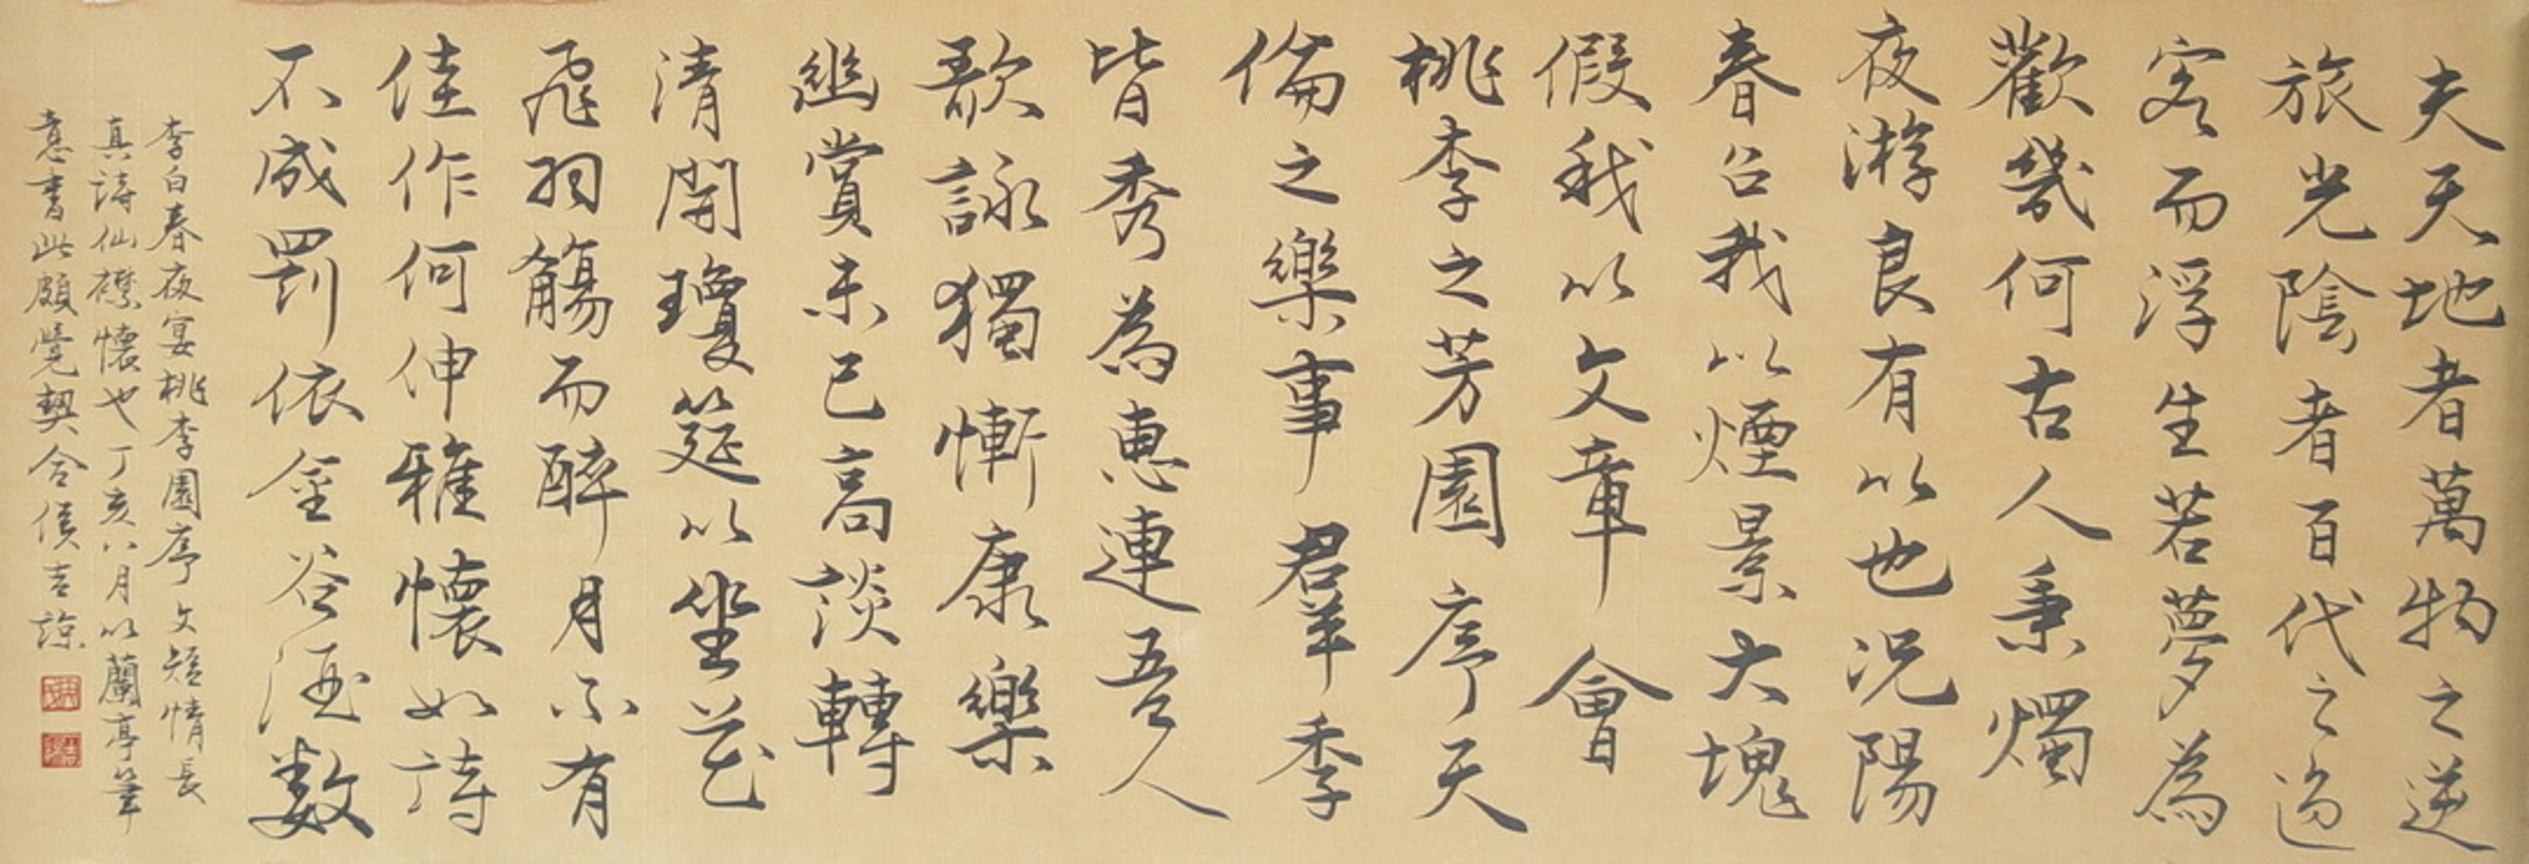 夫天地者萬物之逆
旅光陰者百代之過
客而浮生若夢為
歡幾何古人秉燭
夜游良有以也況陽
春召我以煙景大塊
假我以文章會
桃李之芳園序天
倫之樂事羣季
皆秀為惠連吾人
歌詠獨慚康樂
幽賞未已高談轉
清開瓊筵以坐花
飛羽觴而醉月不有
佳作何伸雅懷如詩
不成罰依金谷酒數
李白春夜宴桃李園序文短情長
真詩仙襟懷也丁亥八月以蘭亭筆
意書此頗覺契合侯吉諒